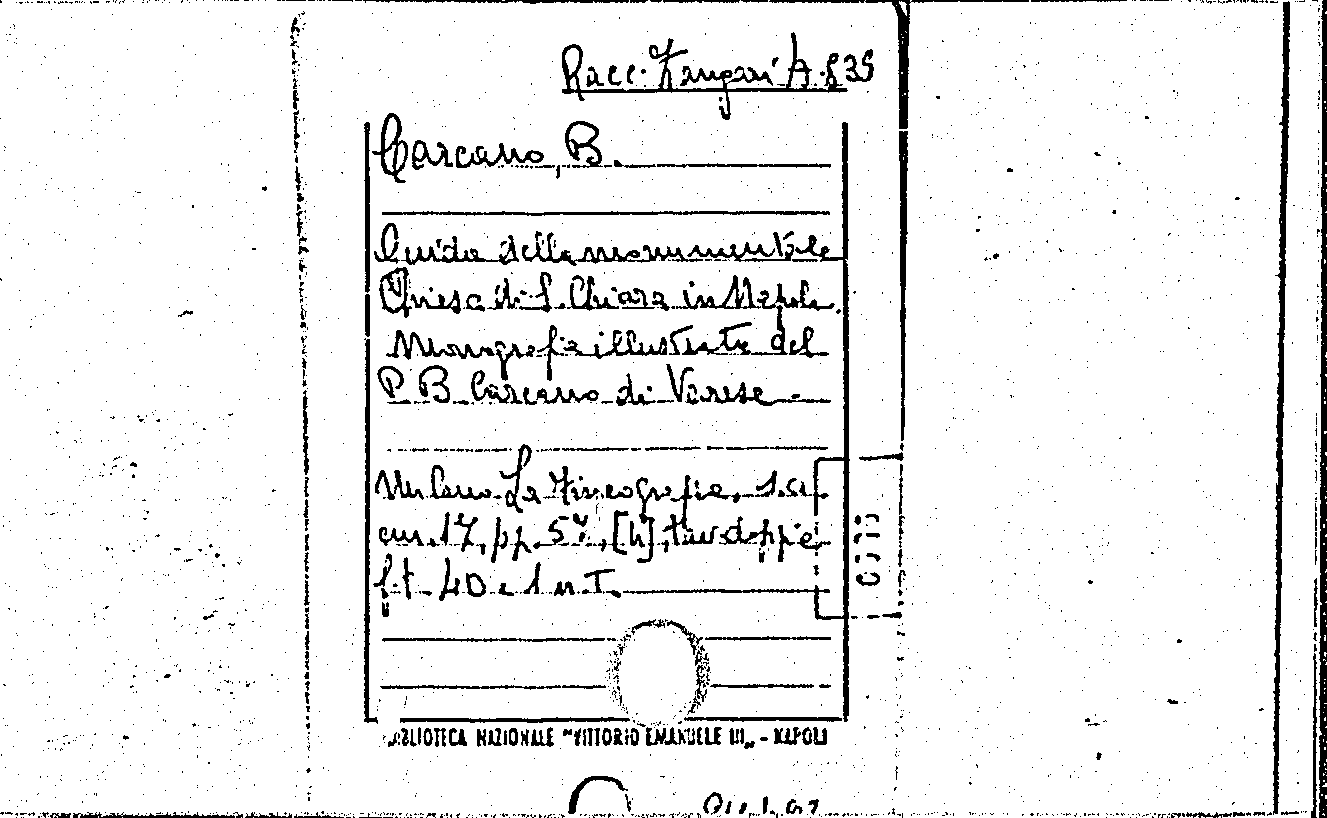 Racc. Zangari A. 835
Carcano, B.
Guida della monumentale
Chiesa di S. Chiara in Napoli.
Monografia illustrata del
P. B. Carcano di Varese -
Milano La Zincografia, s.a.
cm. 17, pp. 57, [4], tav. doppie
f.t. 40 e 1 n. T.
BIBLIOTECA NAZIONALE "VITTORIO EMANUELE III„ - NAPOLI